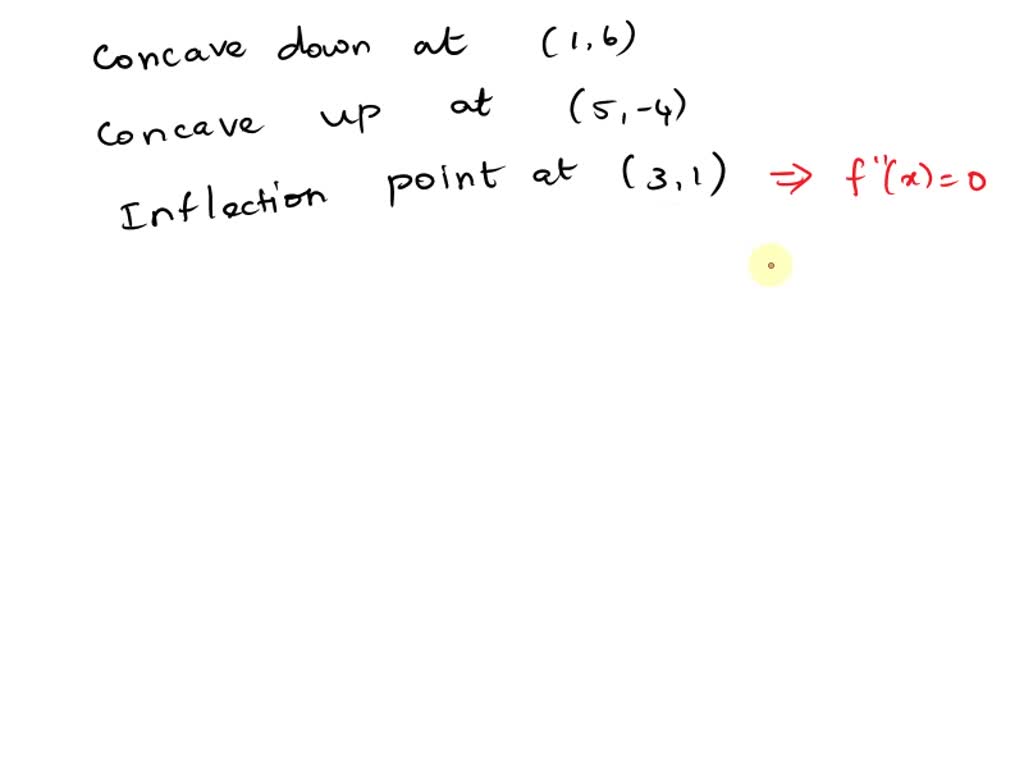 Concave down at (1,6)
Concave up at (5,-4)
Inflection point at (3,1) ⇒ f"(x)=0